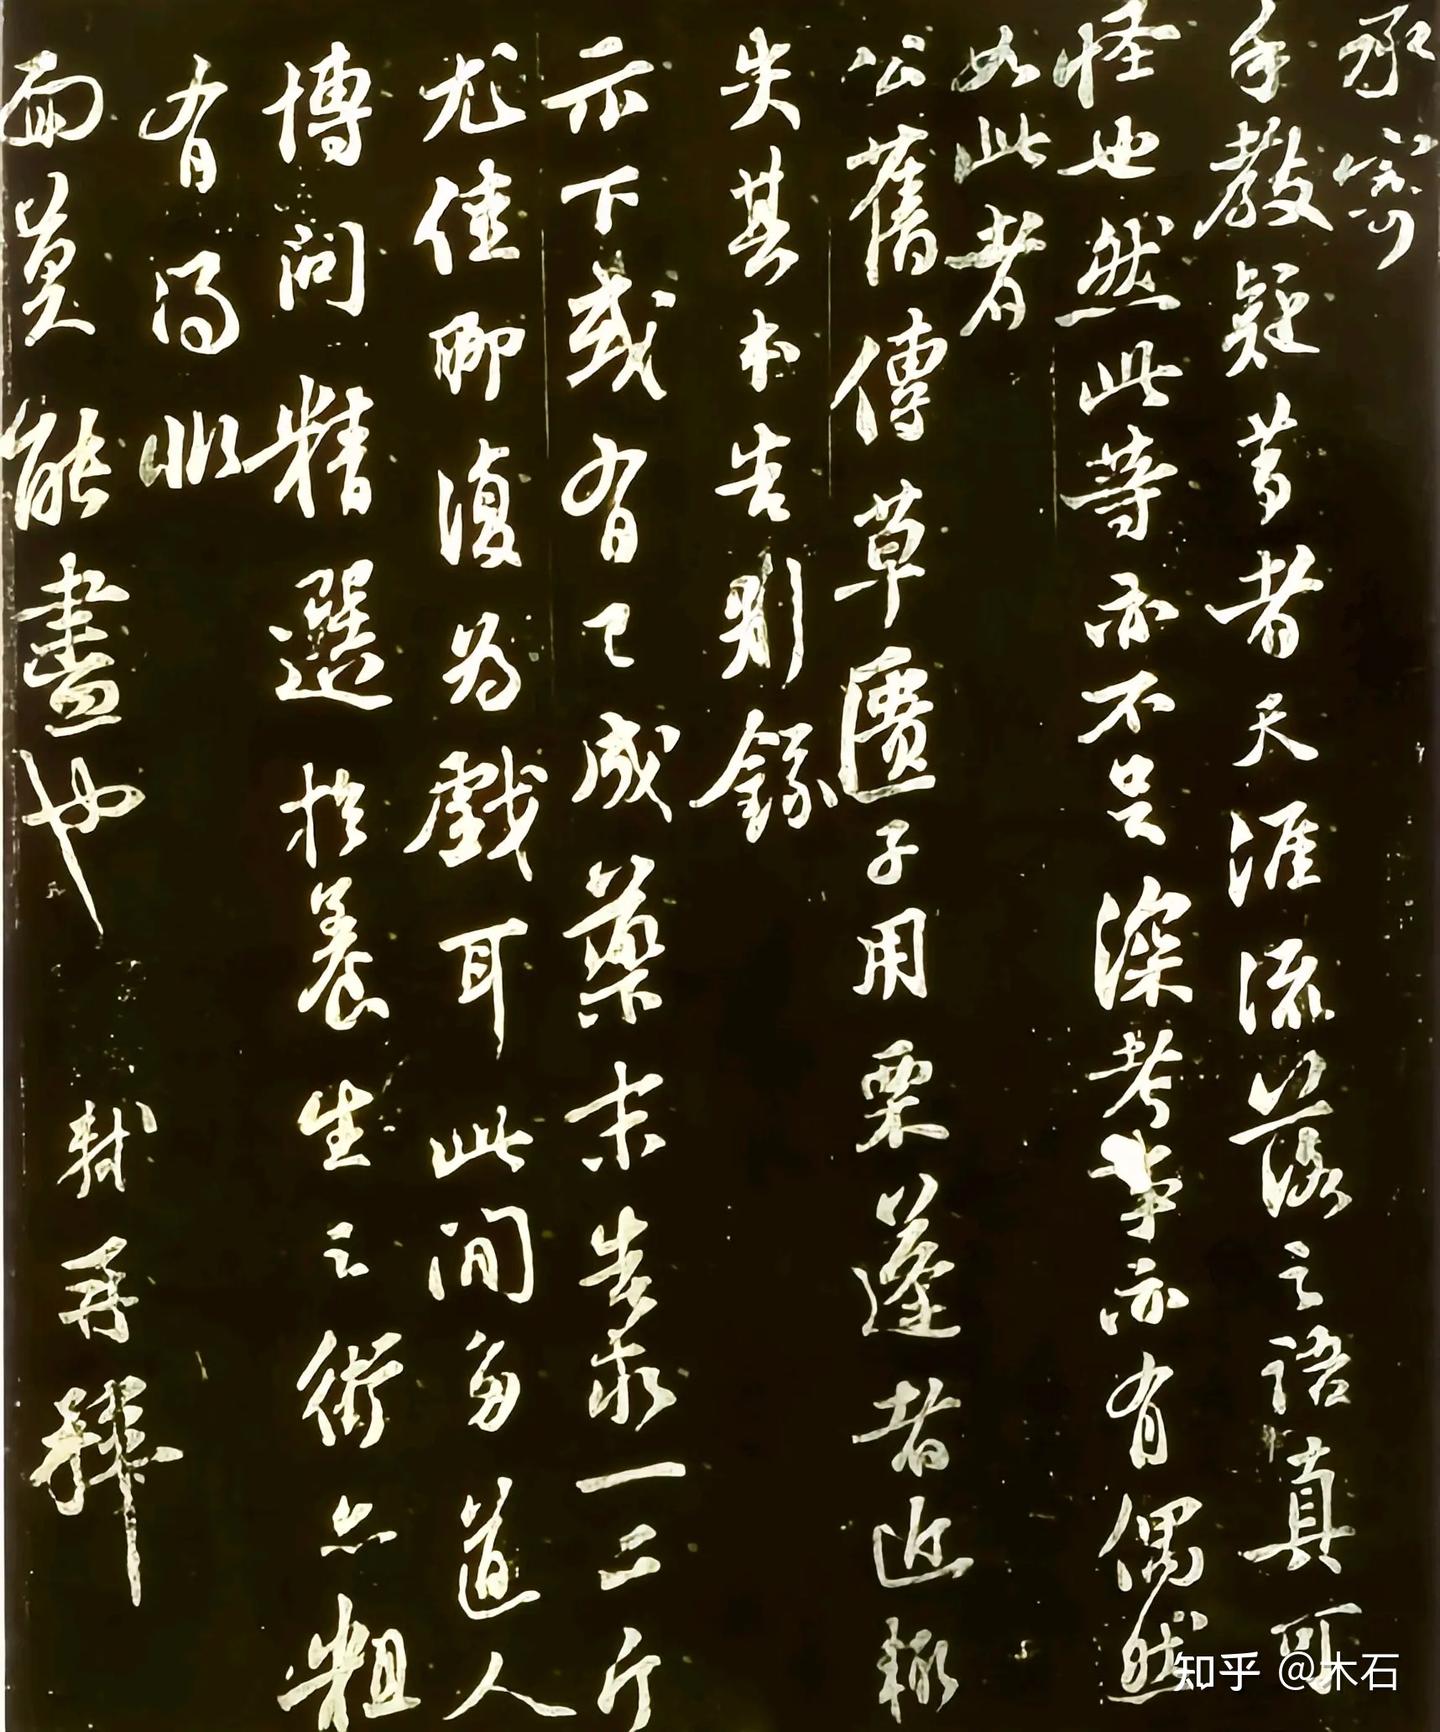 承寄
手教疑昔者天涯流落之語真可
怪也然此等亦不足深考事亦有偶然
如此者
公舊傳草匱子用栗蓬者近輒
失其本告別錄
示下或有已成藥末告求一二斤
尤佳聊復為戲耳此間多道人
博問精選於養生之術亦粗
有得恨
面莫能盡也
軾再拜
知乎 @木石